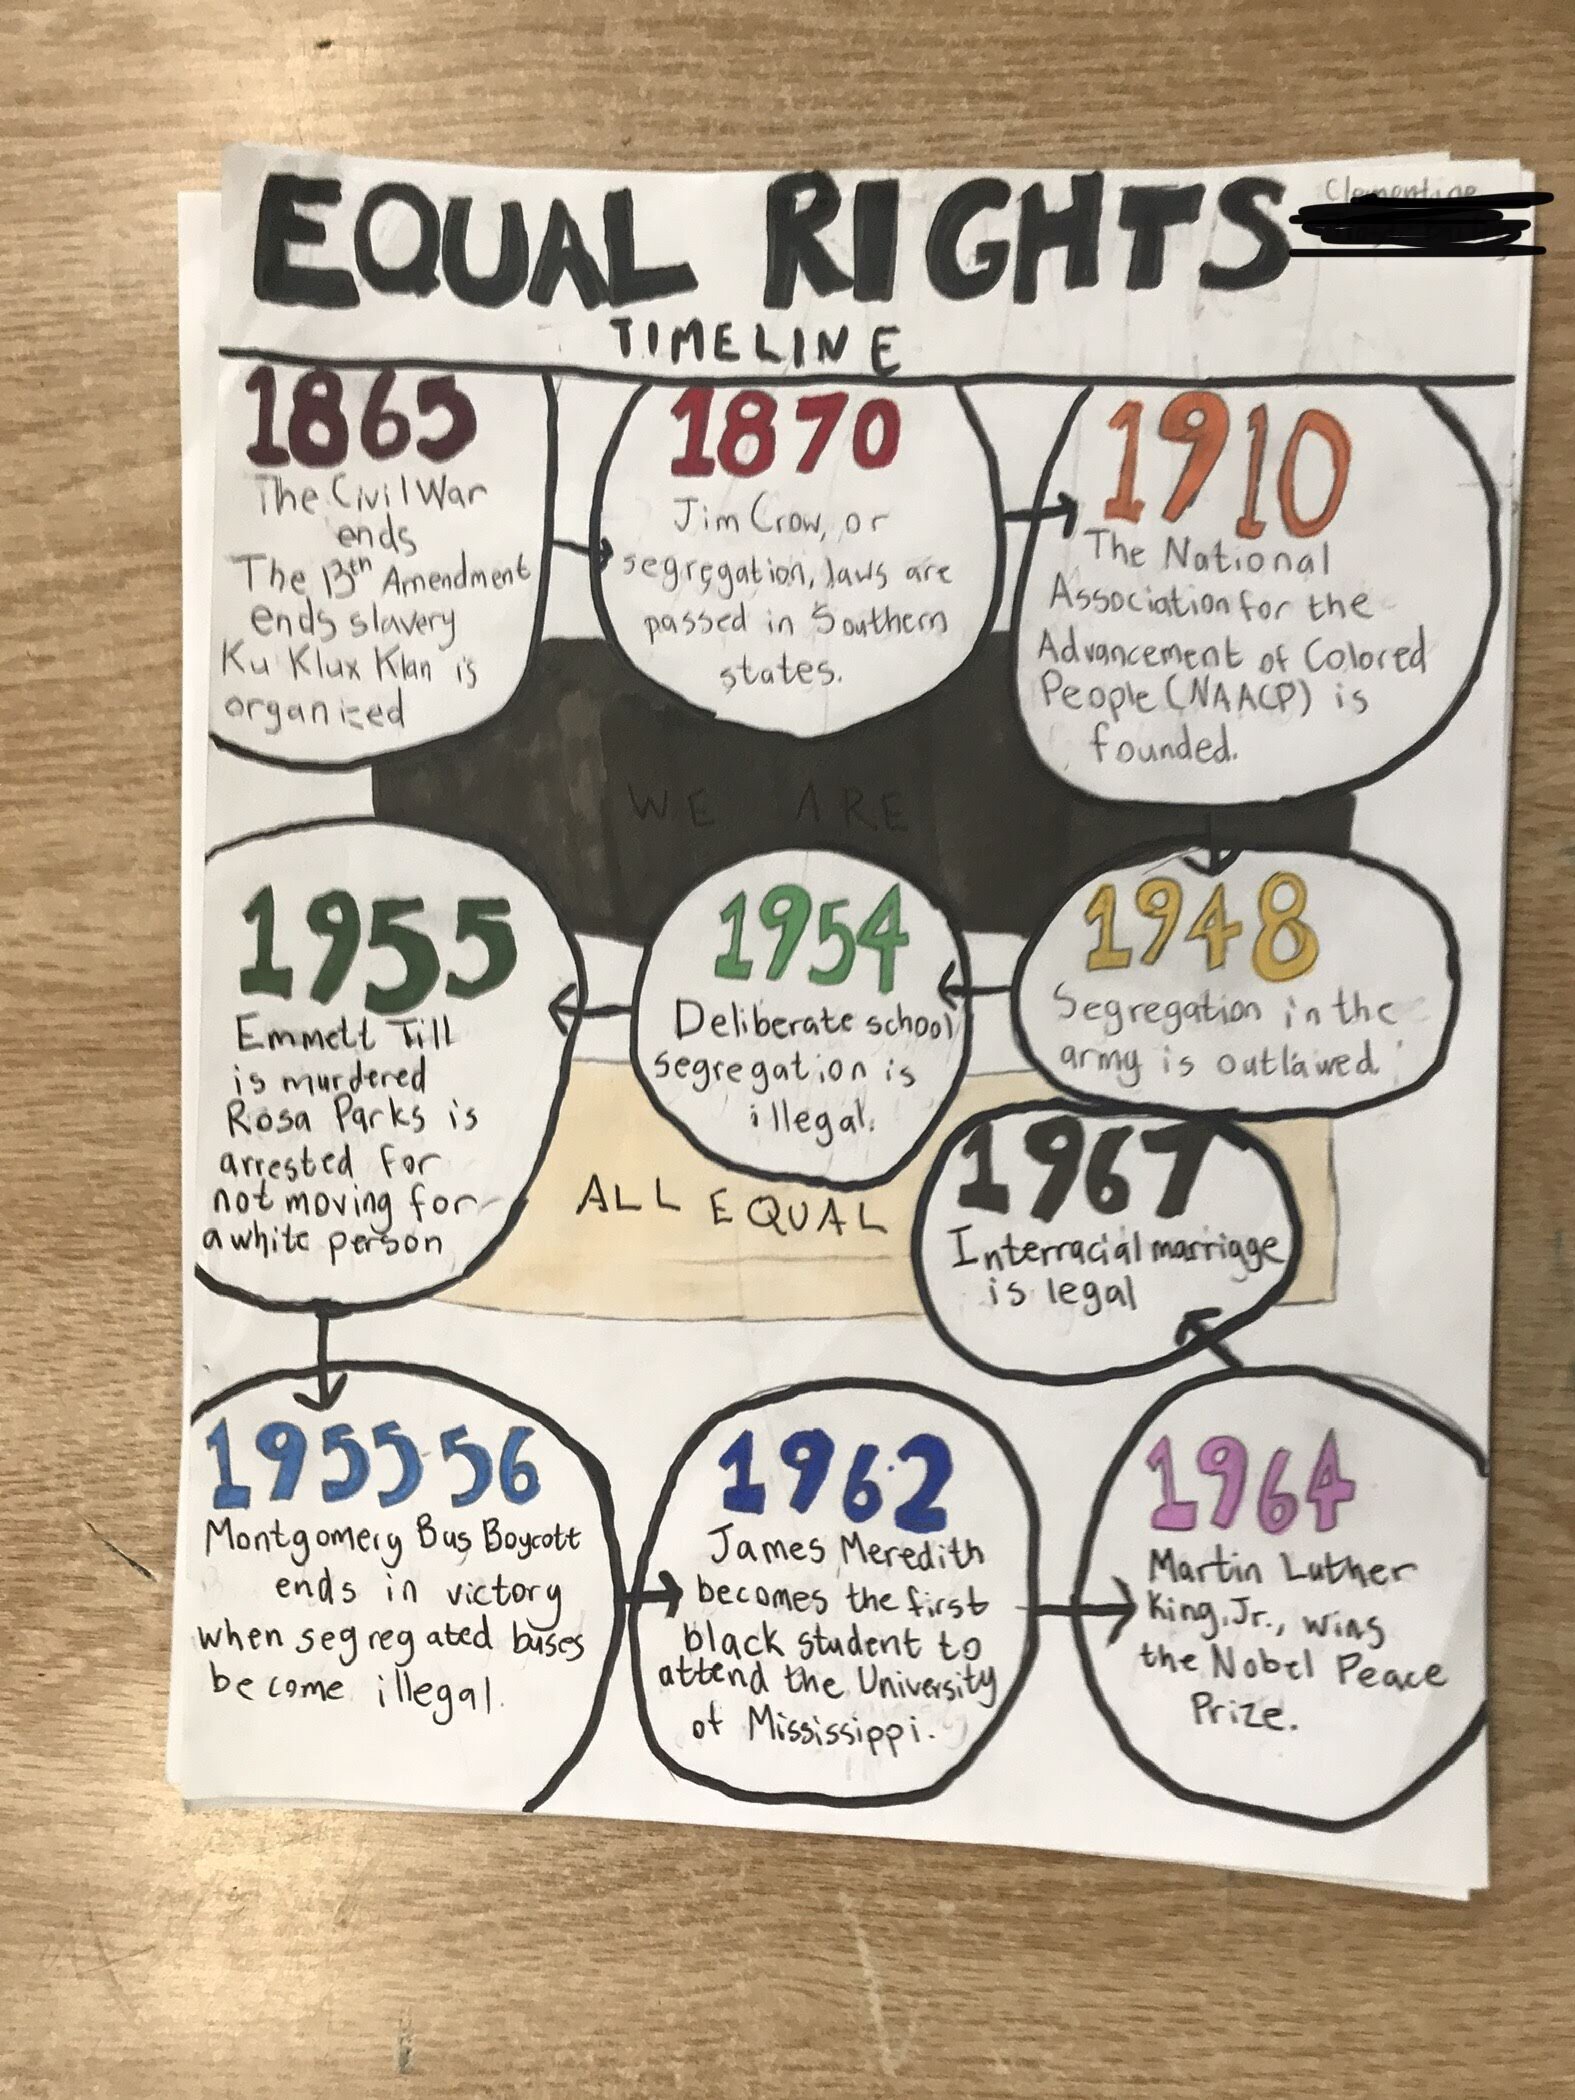 Clementine
EQUAL RIGHTS
TIMELINE
1865
The Civil War
ends
The 13th Amendment
ends slavery
Ku Klux Klan is
organized
1870
Jim Crow, or
segregation, laws are
passed in Southern
states.
1910
The National
Association for the
Advancement of Colored
People (NAACP) is
founded.
WE ARE
1948
Segregation in the
army is outlawed
1954
Deliberate school
segregation is
illegal.
1955
Emmett Till
is murdered
Rosa Parks is
arrested for
not moving for
a white person
ALL EQUAL
1955-56
Montgomery Bus Boycott
ends in victory
when segregated buses
become illegal.
1962
James Meredith
becomes the first
black student to
attend the University
of Mississippi.
1964
Martin Luther
King, Jr., wins
the Nobel Peace
Prize.
1967
Interracial marriage
is legal